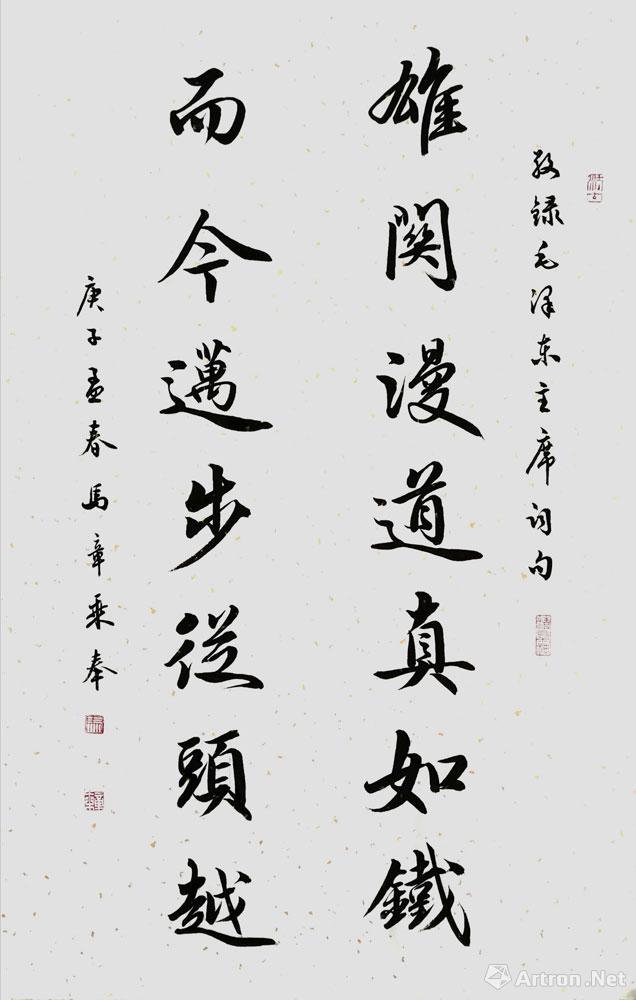 敬録毛泽东主席词句
雄關漫道真如鐵
而今邁步從頭越
庚子孟春馬章乘奉
Artron.Net